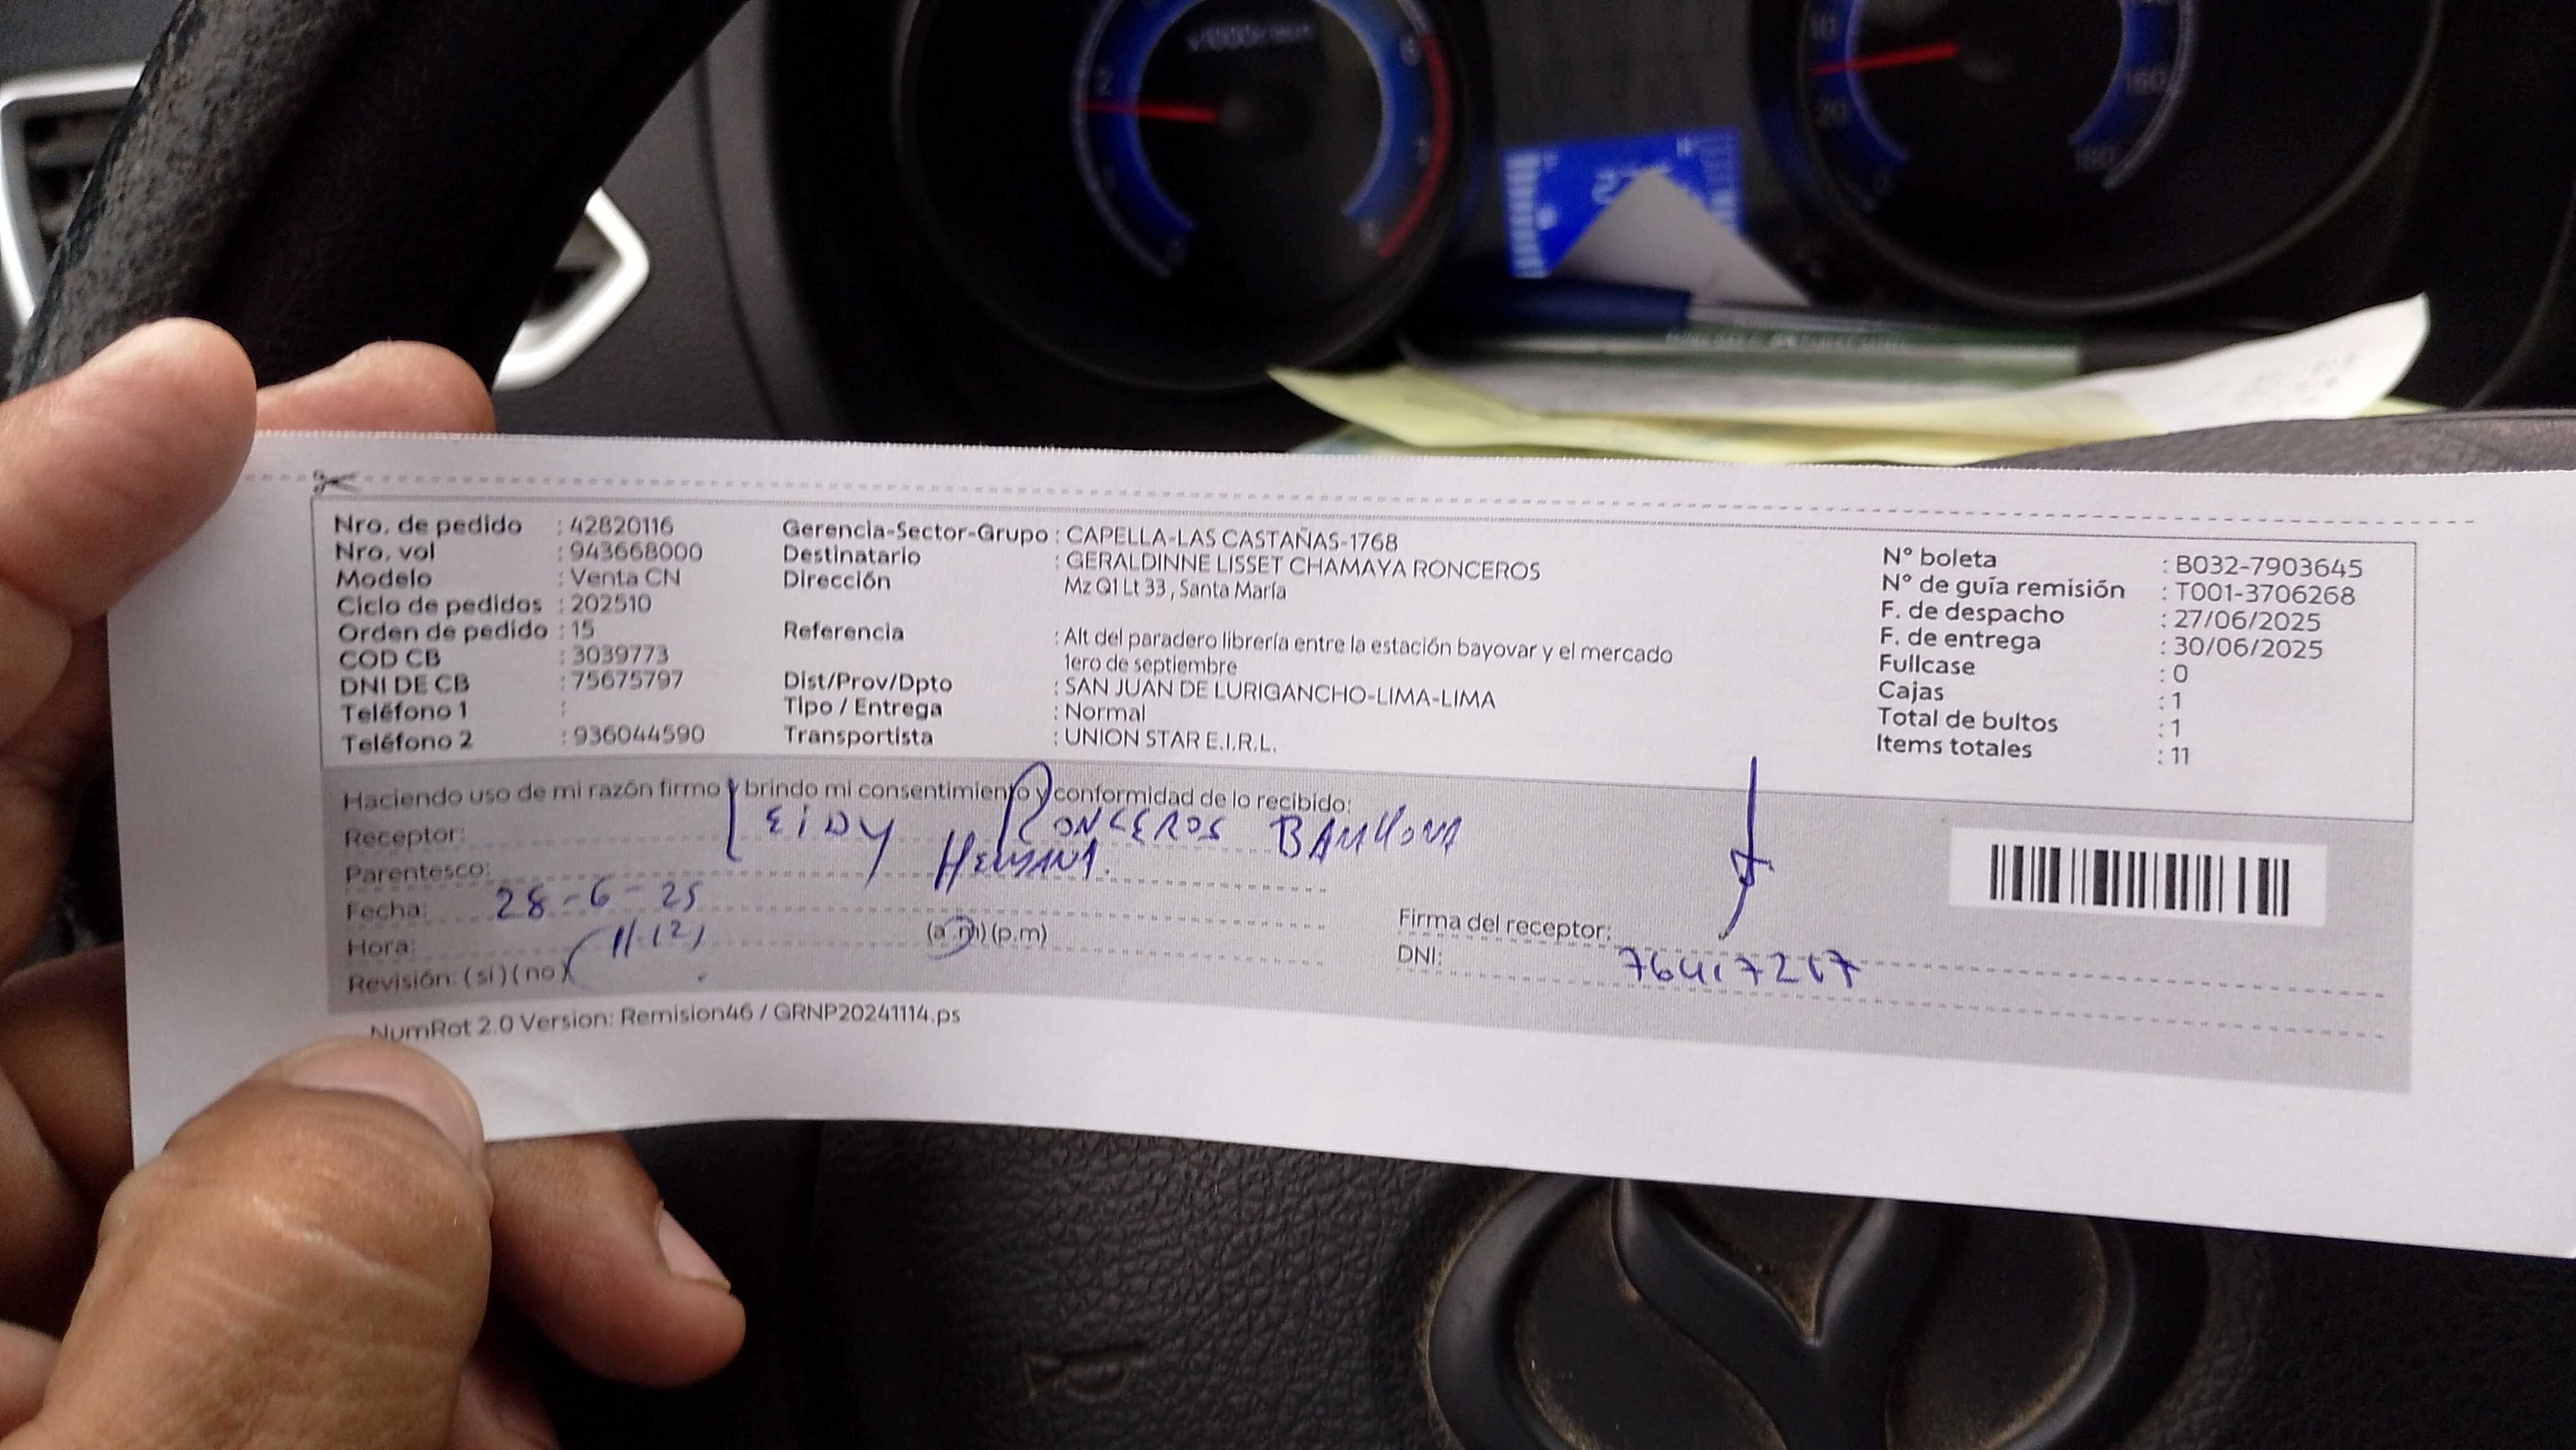 Nro. de pedido : 42820116
Nro. vol : 943668000
Modelo : Venta CN
Ciclo de pedidos : 202510
Orden de pedido : 15
COD CB : 3039773
DNI DE CB : 75675797
Teléfono 1 :
Teléfono 2 : 936044590
Gerencia-Sector-Grupo : CAPELLA-LAS CASTAÑAS-1768
Destinatario : GERALDINNE LISSET CHAMAYA RONCEROS
Dirección Mz Q1 Lt 33 , Santa María
Referencia : Alt del paradero librería entre la estación bayovar y el mercado
1ero de septiembre
Dist/Prov/Dpto : SAN JUAN DE LURIGANCHO-LIMA-LIMA
Tipo / Entrega : Normal
Transportista : UNION STAR E.I.R.L.
N° boleta : B032-7903645
N° de guía remisión : T001-3706268
F. de despacho : 27/06/2025
F. de entrega : 30/06/2025
Fullcase : 0
Cajas : 1
Total de bultos : 1
Items totales : 11
Haciendo uso de mi razón firmo y brindo mi consentimiento y conformidad de lo recibido:
Receptor: LEIDY RONCEROS
Parentesco: HERMANA.
Fecha: 28-6-25
Hora: (a.m) (p.m)
Revisión: (si) (no)
Firma del receptor:
DNI:
NumRot 2.0 Version: Remision46 / GRNP20241114.ps